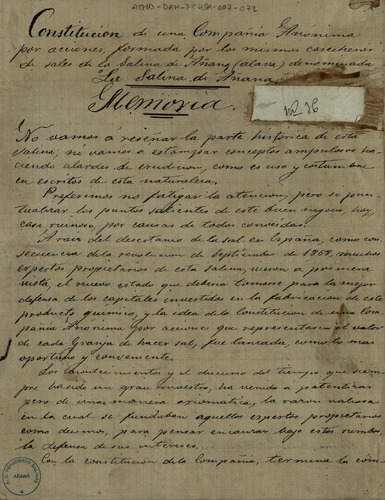 ATHO-DAH-FCUSA-007-072
Constitución de una Compañía Anónima
por acciones, formada por los mismos cosecheros
de sales de la Salina de Añana (alava) denominada
La Salina de Añana
Memoria.
Nº 26
No vamos a reseñar la parte histórica de esta
Salina, ni vamos a estampar conceptos ampulosos ha-
ciendo alardes de erudición, como es uso y costumbre
en escritos de esta naturaleza.
Preferimos no fatigar la atención, pero si pun-
tualizar los puntos salientes de este buen negocio, hoy
casi ruinoso, por causas de todos conocidas.
A raiz del desestanco de la sal en España, como con-
secuencia de la revolucion de Septiembre de 1868, muchos
expertos propietarios de esta salina, vieron a primera
vista, el nuevo estado que debería tomarse para la mejor
defensa de los capitales invertidos en la fabricación de este
producto químico, y la idea de la Constitucion de una Com-
pañía Anonima por acciones que representasen el valor
de cada Granja de hacer sal, fue lanzada, como lo mas
oportuno y conveniente.
Los acontecimientos y el discurso del tiempo que siem-
pre ha sido un gran maestro, ha venido a patentizar
pero de una manera axiomática, la razon valiosa
en la cual se fundaban aquellos expertos propietarios
como decimos, para pensar encauzar bajo estos rumbos,
la defensa de sus intereses.
Con la constitucion de la Compañia, termina la com
AÑANA